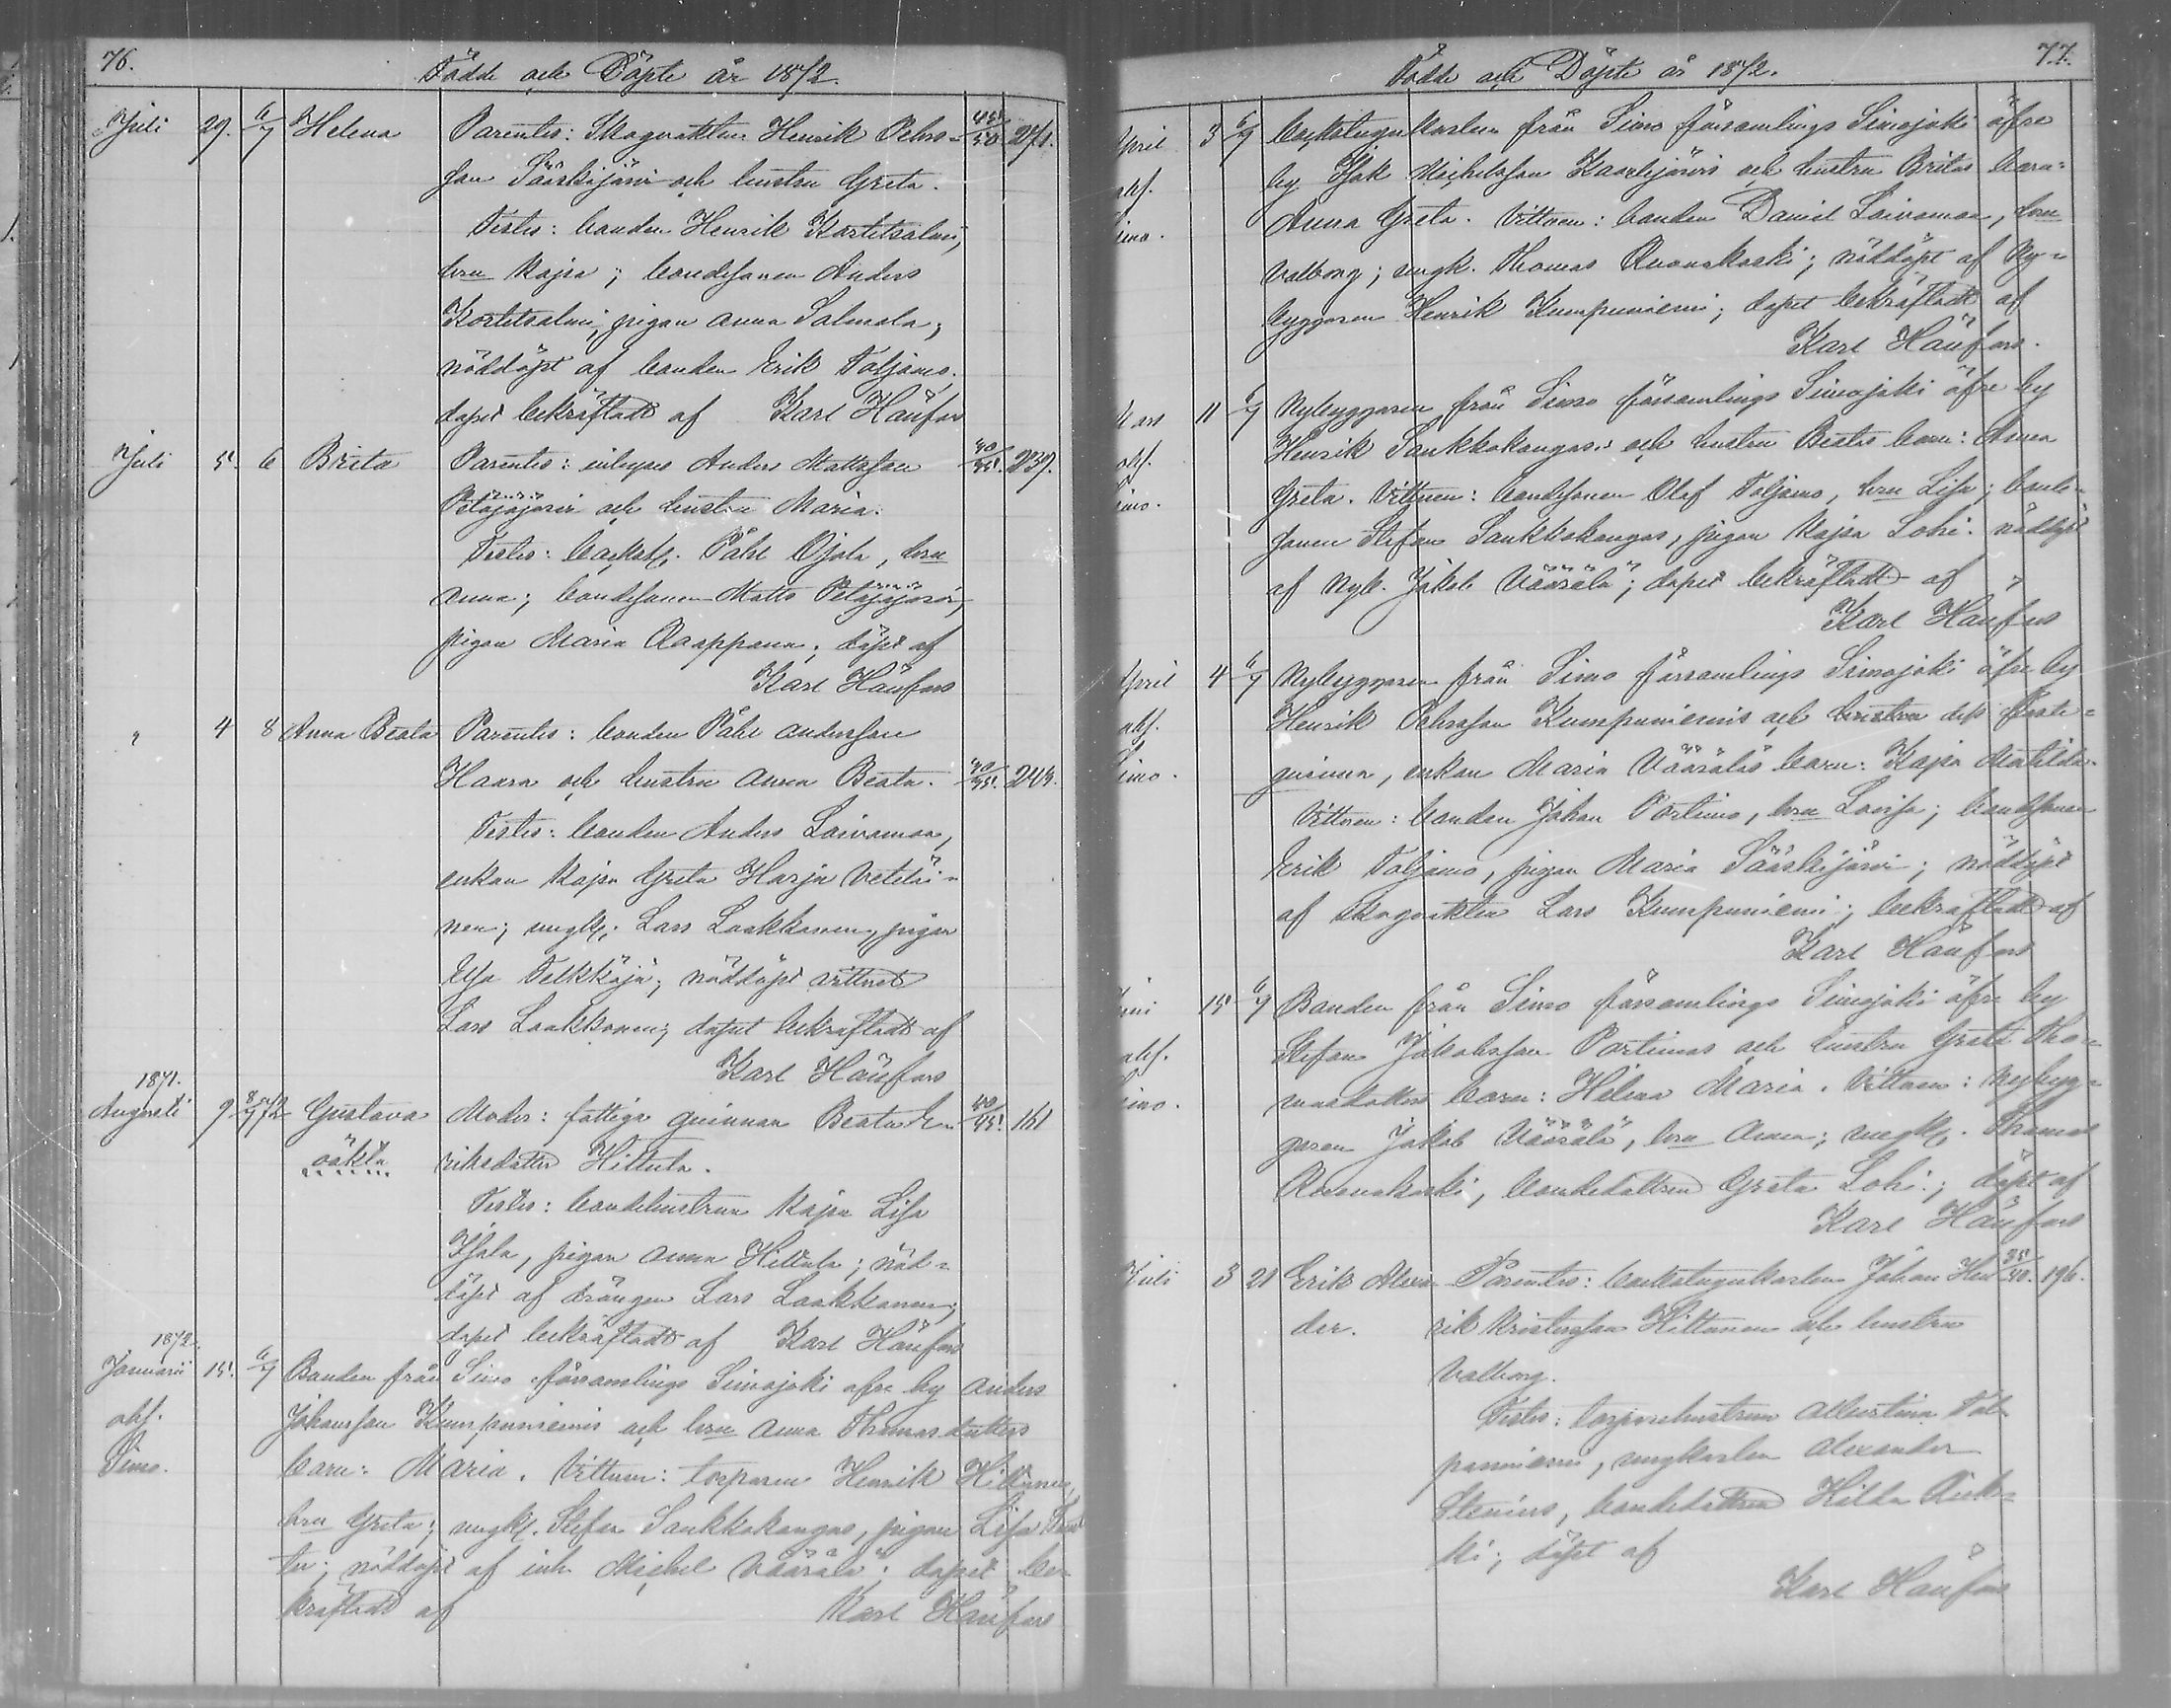 76.
Födde och Döpte år 1872.
Juli 29. 6/7 Helena Parentes: Skogvaktln Henrik Pehrs- 45/50 271.
son Sääskijärvi och hustru Greta.
Testes: bonden Henrik Kortetsalmi,
hru Kajsa; bondesonen Anders
Kortetsalmi, pigan Anna Salmela;
nöddöpt af bonden Erik Taljamo.
dopet bekräftadt af Karl Hänfors
Juli 5. 6 Brita Parentes: inhyses Anders Mattsson 40/45. 239.
Petäjäjärvi och hustru Maria.
Testes: backst. Påhl Ojala, hru
Anna; bondesonen Matts Petäjäjärvi,
pigan Maria Raappana; döpt af
Karl Hänfors
" 4 8 Anna Beata Parentes: bonden Påhl Andersson
Haara och hustru Anna Beata. 40/45.
Testes: bonden Anders Laivamaa,
enkan Kajsa Greta Harju Vetelai-
nen; ungk. Lars Laakkonen, pigan
Elsa Telkkäjä; nöddöpt vittnet
Lars Laakkonen; dopet bekräftadt af
Karl Hänfors
1871.
Augusti 9. Gustava Moder: fattiga qvinnan Beata E- 40/45. 161
oäkta riksdotter Hiltula.
Testes: bondehustrun Kajsa Lisa
pigan Anna Hiltula; nöd-
döpt af drängen Lars Laakkonen;
dopet bekräftadt af Karl Hänfors
1872.
Januarii 15. 6/7 Bonden från Simo församlings Simojoki öfre by Anders
ahf. Johansson Kumpuniemis och hru Anna Thomasdotters
Simo. barn: Maria. Vittnen: torparen Henrik Hiltunen,
hru Greta; ungk. Stefan Sankkokangas, pigan Lisa
nöddöpt af inh. Michel Väärälä; dopet be-
kräftadt af Karl Hänfors
77.
Födde och Döpte år 1872.
April 3 6/7 backstugukarlen från Simo församlings Simojoki öfre
ahf. by Isak Michelsson Kaarlejärvis och hustru Britas barn:
Simo. Anna Greta. Vittnen: bonden Daniel Laivamaa, hru
Valborg; ungk. Thomas Ruonakoski; nöddöpt af Ny-
byggaren Henrik Kumpuniemi; dopet bekräftadt af
Karl Hänfors.
Mars 11 6/7 Nybyggaren från Simo församlings Simojoki öfre by
ahf. Henrik Sankkokangas's och hustru Britas barn: Anna
Simo. Greta. Vittnen: bondesonen Olof Taljamo, hru Lisa; bonde-
sonen Stefan Sankkokangas, pigan Kajsa Lohi. nöddöpt
af Nyb. Jakob Väärälä; dopet bekräftadt af
Karl Hänfors
April 4 6/7 Nybyggaren från Simo församlings Simojoki öfre by
ahf. Henrik Pehrsson Kumpuniemis och hustru dess fäste-
Simo. qvinna, enkan Maria Vääräläs barn: Kajsa Matilda.
Vittnen: bonden Johan Portimo, hru Lovisa; bondesonen
Erik Taljamo, pigan Maria Sääskijärvi; nöddöpt
af skogvaktln Lars Kumpuniemi; bekräftadt af
Karl Hänfors
15 6/7 Bonden från Simo församlings Simojoki öfre by
ahf. Stefan Jakobsson Portimos och hustru Greta Tho-
Simo. masdotters barn: Helena Maria. Vittnen: Nybyg-
garen Jakob Väärälä, hru Anna; ungk. Thomas
Ruonakoski, bondedottren Greta Lohi; döpt af
Karl Hänfors
Juli 3 21 Erik Alexan- Parentes: backstugukarlen Johan Hen- 35/40. 196.
der. rik Kristersson Hiltunen och hustru
Valborg.
Testes: torparehustrun Albertina Tal-
panniemi, ungkarlen Alexander
Stenius, bondedottren Hilda
döpt af
Karl Hänfors